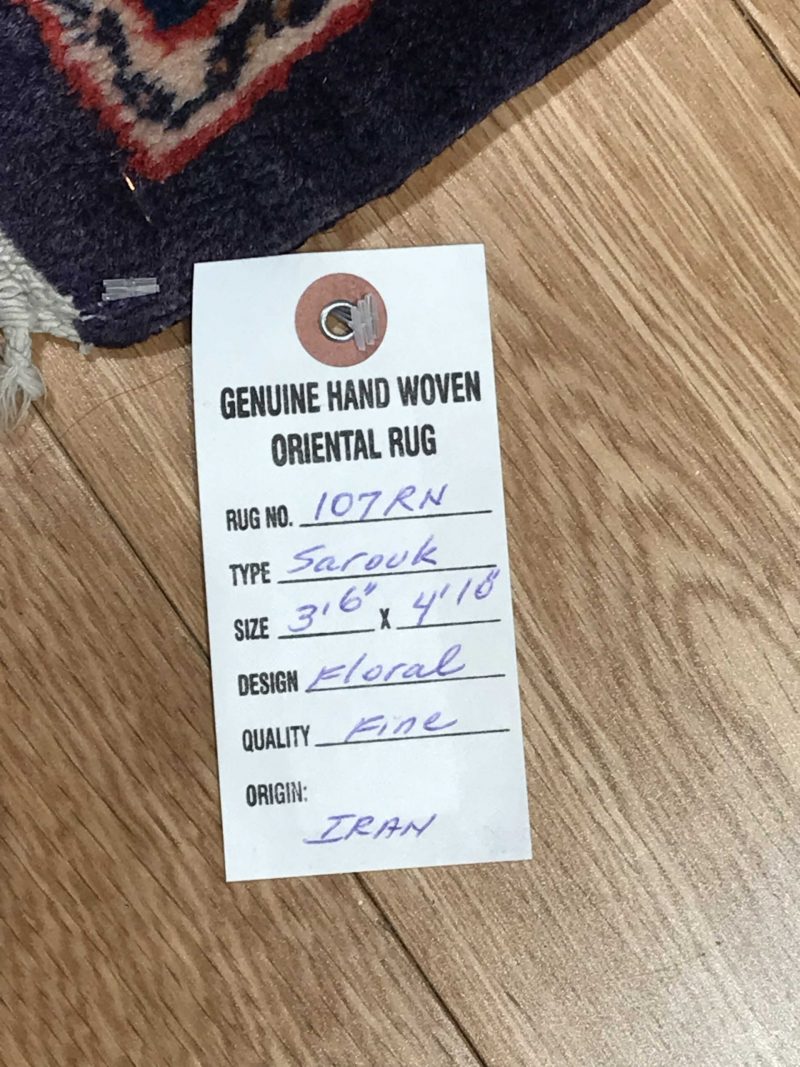 GENUINE HAND WOVEN
ORIENTAL RUG
RUG NO. 107RN
TYPE Sarouk
SIZE 3'6" X 4'10"
DESIGN Floral
QUALITY Fine
ORIGIN:
IRAN